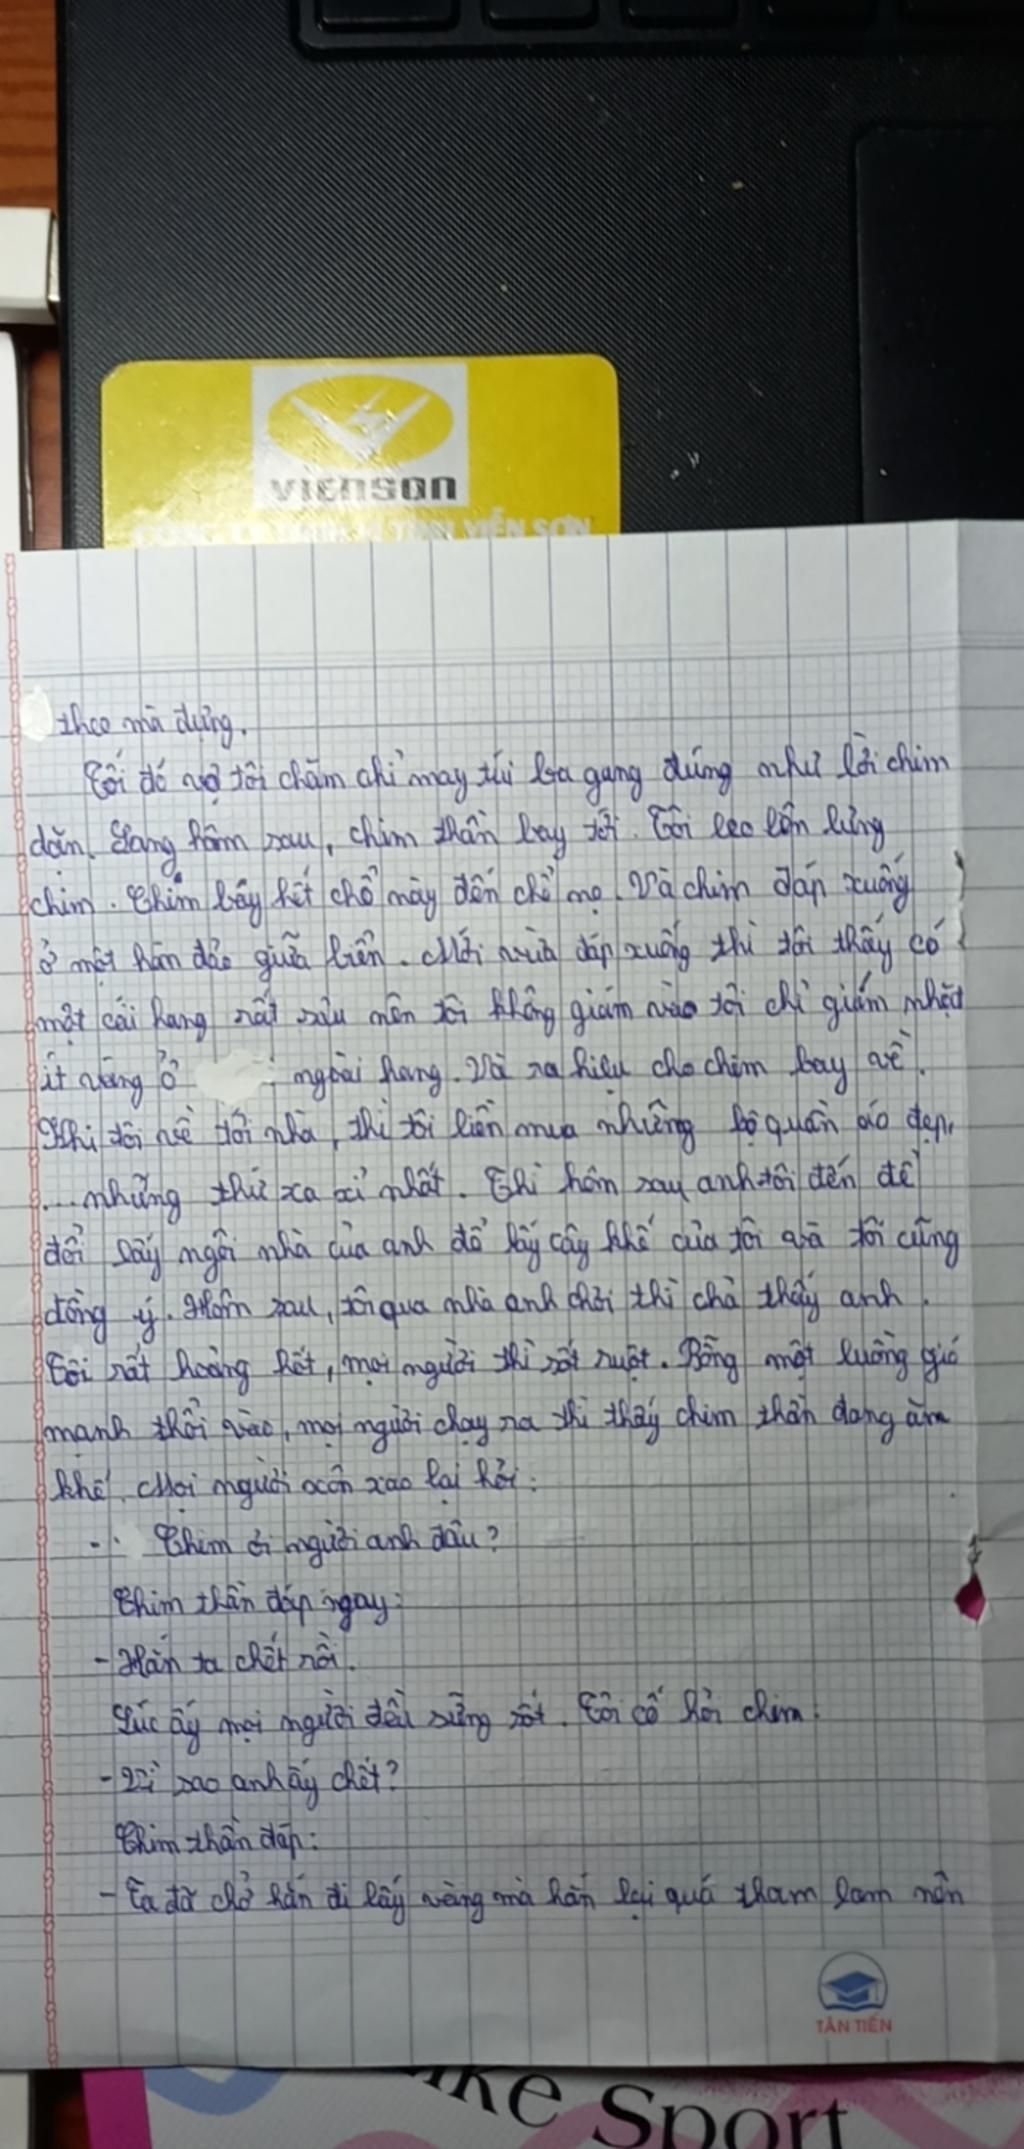 VIENSON
VIỄN SƠN
theo mà đựng.
Tối đó vợ tôi chăm chỉ may túi ba gang đúng như lời chim
dặn. Sang hôm sau, chim thần bay tới. Tôi leo lên lưng
chim. Chim bây hết chổ mày đến chổ mọ. Và chim đáp xuống
ở một hòn đảo giữa biển. Mới vừa đáp xuống thì tôi thấy có
một cái hang rất sâu nên tôi không giám vào tôi chỉ giám nhặt
ít vàng ở ngoài hang. Và ra hiệu cho chim bay về.
Khi tôi về tới nhà, thì tôi liền mua những bộ quần áo đẹp,
... những thứ xa xỉ nhất. Thì hôm sau anh tôi đến để
đổi lấy ngôi nhà của anh để lấy cây khế của tôi và tôi cũng
đồng ý. Hôm sau, tôi qua nhà anh chơi thì chả thấy anh.
Tôi rất hoảng hốt, mọi người thì sốt ruột. Bỗng một luồng gió
mạnh thổi vào, mọi người chạy ra thì thấy chim thần đang ăn
khế. Mọi người xôn xao lại hỏi:
- Chim ơi người anh đâu?
Chim thần đáp ngay:
- Hắn ta chết rồi.
Lúc ấy mọi người đều sững sốt. Tôi cố hỏi chim:
- Vì sao anh ấy chết?
Chim thần đáp:
- Ta đã chở hắn đi lấy vàng mà hắn lại quá tham lam nên
TÂN TIẾN
ke Sport